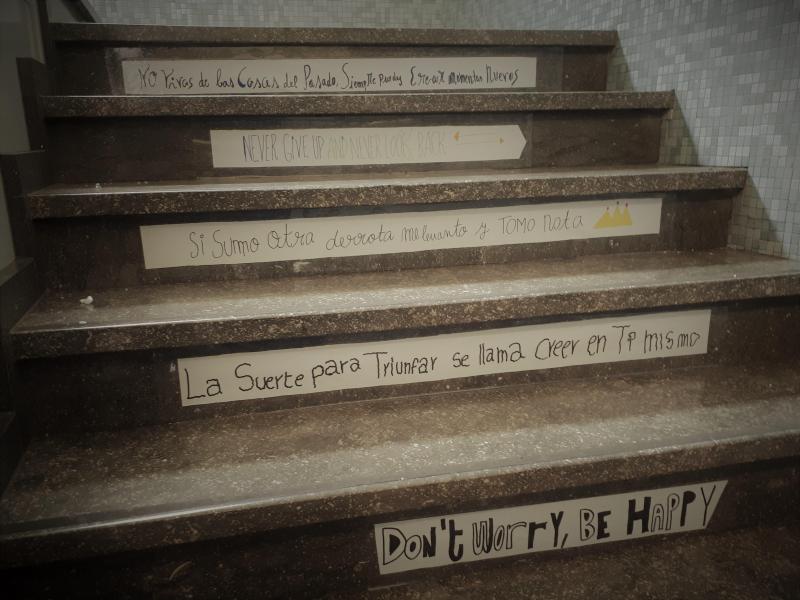 No Vivas de las Cosas del Pasado, Siempre puedes Crear momentos Nuevos
NEVER GIVE UP AND NEVER LOOK BACK
Si Sumo Otra derrota me levanto y TOMO nota
La Suerte para Triunfar se llama Creer en Ti mismo
DON't WorrY, BE HAPPY